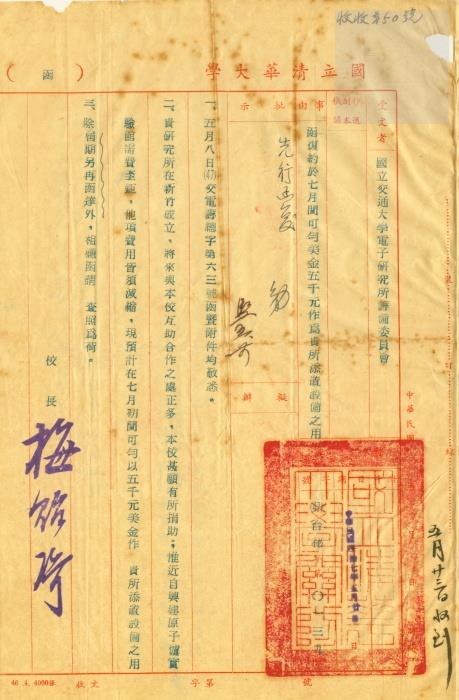 收收第50號
國立清華大學
（函）
受文者 國立交通大學電子研究所籌備委員會
事由
批示
擬辦
函復約於七月間可勻美金五千元作爲貴所添置設備之用
先行函复
一、五月八日(47)交電籌總字第六三號函暨附件均敬悉。
二、貴研究所在新竹成立，將來與本校互助合作之處正多，本校甚願有所捐助；惟近自興建原子爐實
驗館需費至鉅，他項費用皆須減縮，現預計在七月初間可勻以五千元美金作 貴所添置設備之用
三、除屆期另再函達外，相應函請 查照爲荷。
校長 梅貽琦
中華民國
五月廿三日收到
46.4.4000張
收文 字第 號